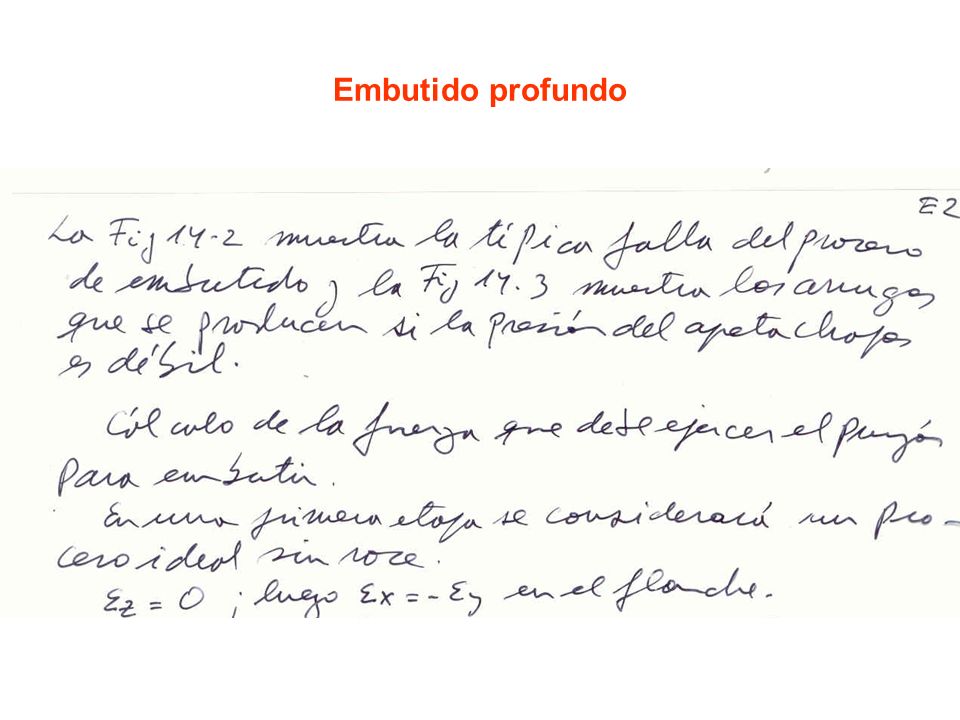 Embutido profundo
E2
La Fig 14-2 muestra la típica falla del proceso
de embutido y la Fig 14.3 muestra las arrugas
que se producen si la presión del apretachapas
es débil.
Cálculo de la fuerza que debe ejercer el punzón
para embutir.
En una primera etapa se considerará un pro-
ceso ideal sin roce.
εz = 0 ; luego εx = - εy en el flanche.